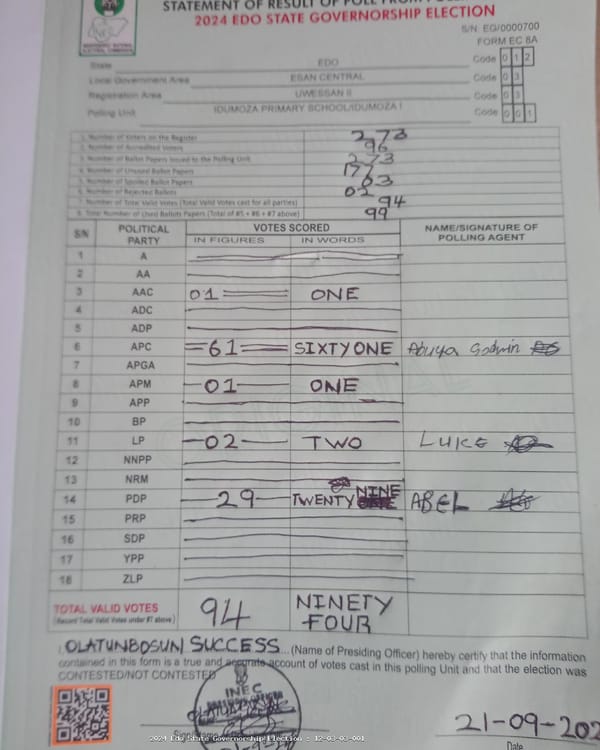 STATEMENT OF RESULT OF POLL FROM
2024 EDO STATE GOVERNORSHIP ELECTION
S/N: EG/0000700
FORM EC 8A
State EDO Code 0 1 2
Local Government Area ESAN CENTRAL Code 0 3
Registration Area UWESSAN II Code 0 3
Polling Unit IDUMOZA PRIMARY SCHOOL/IDUMOZA I Code 0 0 1
1. Number of Voters on the Register 273
2. Number of Accredited Voters 96
3. Number of Ballot Papers Issued to the Polling Unit 273
4. Number of Unused Ballot Papers 177
5. Number of Spoiled Ballot Papers 03
6. Number of Rejected Ballots 02
7. Number of Total Valid Votes (Total Valid Votes cast for all parties) 94
8. Total Number of Used Ballots Papers (Total of #5 + #6 + #7 above) 99
S/N POLITICAL PARTY VOTES SCORED NAME/SIGNATURE OF POLLING AGENT
IN FIGURES IN WORDS
1 A
2 AA
3 AAC 01 ONE
4 ADC
5 ADP
6 APC 61 SIXTY ONE Godwin
7 APGA
8 APM 01 ONE
9 APP
10 BP
11 LP 02 TWO LUKE
12 NNPP
13 NRM
14 PDP 29 TWENTY NINE ABEL
15 PRP
16 SDP
17 YPP
18 ZLP
TOTAL VALID VOTES 94 NINETY FOUR
(Record Total Valid Votes under #7 above)
I OLATUNBOSUN SUCCESS (Name of Presiding Officer) hereby certify that the information
contained in this form is a true and accurate account of votes cast in this polling Unit and that the election was
CONTESTED/NOT CONTESTED
INEC
21-09-202
Date
2024 Edo State Governorship Election : 12-03-03-001